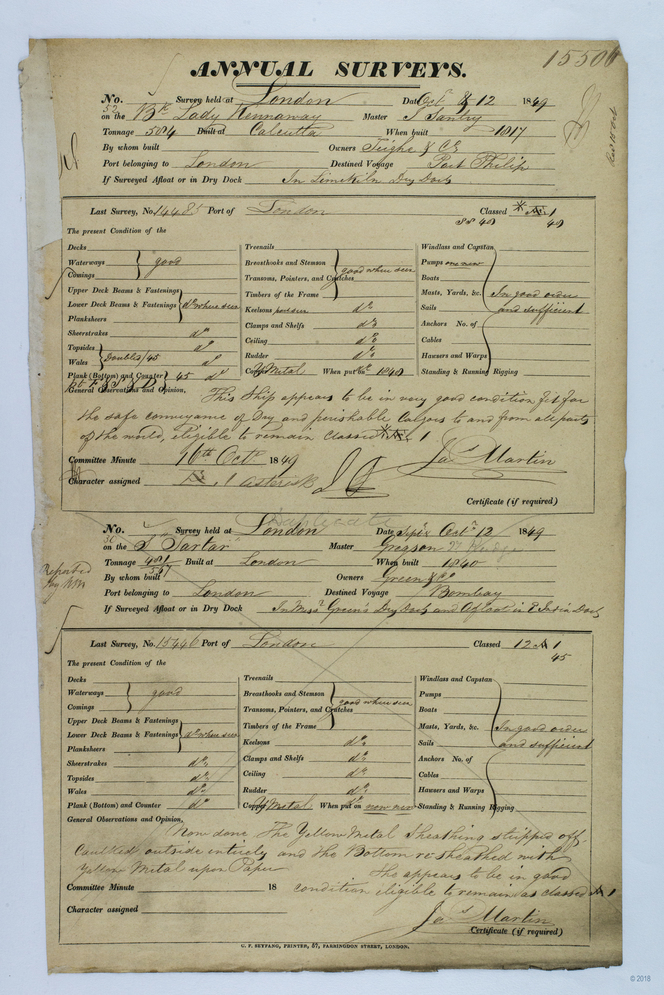 ANNUAL SURVEYS.
No. 52 Survey held at London Date Oct 8 & 12 1849
on the Bk Lady Kennaway Master J Santry
Tonnage 584 Built at Calcutta When built 1817
By whom built Owners Teighe & Co
Port belonging to London Destined Voyage Port Philip
If Surveyed Afloat or in Dry Dock In Limekiln Dry Dock
Last Survey, No. Port of London Classed 1
SS 40 49
The present Condition of the
Decks Treenails Windlass and Capstan
Waterways good Breasthooks and Stemson good where seen Pumps one new
Comings Transoms, Pointers, and Crutches Boats
Upper Deck Beams & Fastenings Timbers of the Frame Masts, Yards, &c. In good order
Lower Deck Beams & Fastenings do where seen Keelsons part seen do Sails and sufficient
Planksheers Clamps and Shelfs do Anchors No. of
Sheerstrakes do Ceiling do Cables
Topsides do Rudder do Hawsers and Warps
Wales Doubled/45 do Copper Y Metal When put on 1848 Standing & Running Rigging
Plank (Bottom) and Counter 45 do
General Observations and Opinion, This Ship appears to be in very good condition fit for
the safe conveyance of Dry and perishable Cargoes to and from all parts
of the world, eligible to remain classed 1
Committee Minute 16th Octr 1849 Jas Martin
Character assigned 1 asterisk
Certificate (if required)
No. 50 Survey held at London Date Septr Octr 12 1849
on the S "Tartar" Master Gregson
Tonnage 567 Built at London When built 1840
By whom built Owners Green & Co
Port belonging to London Destined Voyage Bombay
If Surveyed Afloat or in Dry Dock In Messrs Green's Dry Dock and Afloat in E India Dock
Last Survey, No. 15446 Port of London Classed 12 A 1
45
The present Condition of the
Decks Treenails Windlass and Capstan
Waterways good Breasthooks and Stemson good where seen Pumps
Comings Transoms, Pointers, and Crutches Boats
Upper Deck Beams & Fastenings Timbers of the Frame Masts, Yards, &c. In good order
Lower Deck Beams & Fastenings do where seen Keelsons do Sails and sufficient
Planksheers Clamps and Shelfs do Anchors No. of
Sheerstrakes do Ceiling do Cables
Topsides do Rudder do Hawsers and Warps
Wales do Copper Y Metal When put on now new Standing & Running Rigging
Plank (Bottom) and Counter do
General Observations and Opinion,
Now done The Yellow Metal Sheathing stripped off
Caulked outside entirely and the Bottom resheathed with
Yellow Metal upon Paper She appears to be in good
Committee Minute 18 condition eligible to remain as classed A 1
Character assigned Jas Martin
Certificate (if required)
C. F. SEYFANG, PRINTER, 57, FARRINGDON STREET, LONDON.
© 2018